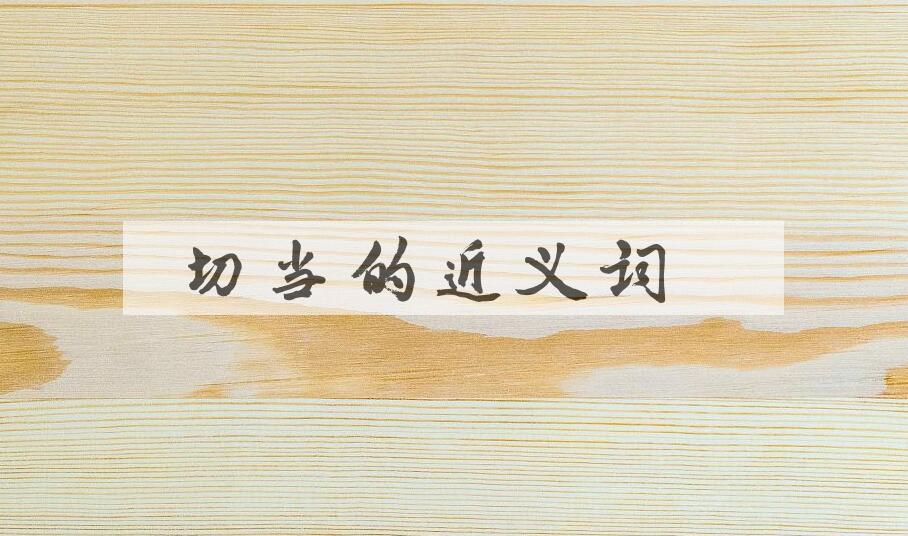 切当的近义词